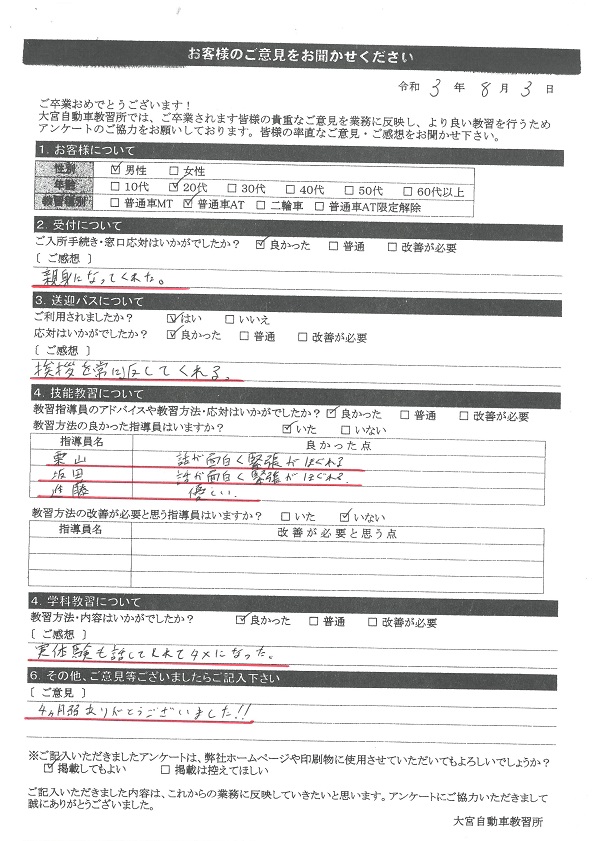 お客様のご意見をお聞かせください
令和 3 年 8 月 3 日
ご卒業おめでとうございます！
大宮自動車教習所では、ご卒業されます皆様の貴重なご意見を業務に反映し、より良い教習を行うため
アンケートのご協力をお願いしております。皆様の率直なご意見・ご感想をお聞かせ下さい。
1. お客様について
性別 ☑ 男性 □ 女性
年齢 □ 10代 ☑ 20代 □ 30代 □ 40代 □ 50代 □ 60代以上
教習種別 □ 普通車MT ☑ 普通車AT □ 二輪車 □ 普通車AT限定解除
2. 受付について
ご入所手続き・窓口応対はいかがでしたか？ ☑ 良かった □ 普通 □ 改善が必要
〔 ご感想 〕
親身になってくれた。
3. 送迎バスについて
ご利用されましたか？ ☑ はい □ いいえ
応対はいかがでしたか？ ☑ 良かった □ 普通 □ 改善が必要
〔 ご感想 〕
挨拶を常に返してくれる。
4. 技能教習について
教習指導員のアドバイスや教習方法・応対はいかがでしたか？ ☑ 良かった □ 普通 □ 改善が必要
教習方法の良かった指導員はいますか？ ☑ いた □ いない
指導員名 良かった点
栗山 話が面白く緊張がほぐれる
坂田 話が面白く緊張がほぐれる.
進藤 優しい.
教習方法の改善が必要と思う指導員はいますか？ □ いた ☑ いない
指導員名 改善が必要と思う点
4. 学科教習について
教習方法・内容はいかがでしたか？ ☑ 良かった □ 普通 □ 改善が必要
〔 ご感想 〕
実体験も話してくれてタメになった。
6. その他、ご意見等ございましたらご記入下さい
〔 ご意見 〕
4ヵ月弱ありがとうございました!!
※ご記入いただきましたアンケートは、弊社ホームページや印刷物に使用させていただいてもよろしいでしょうか？
☑ 掲載してもよい □ 掲載は控えてほしい
ご記入いただきました内容は、これからの業務に反映していきたいと思います。アンケートにご協力いただきまして
誠にありがとうございました。
大宮自動車教習所